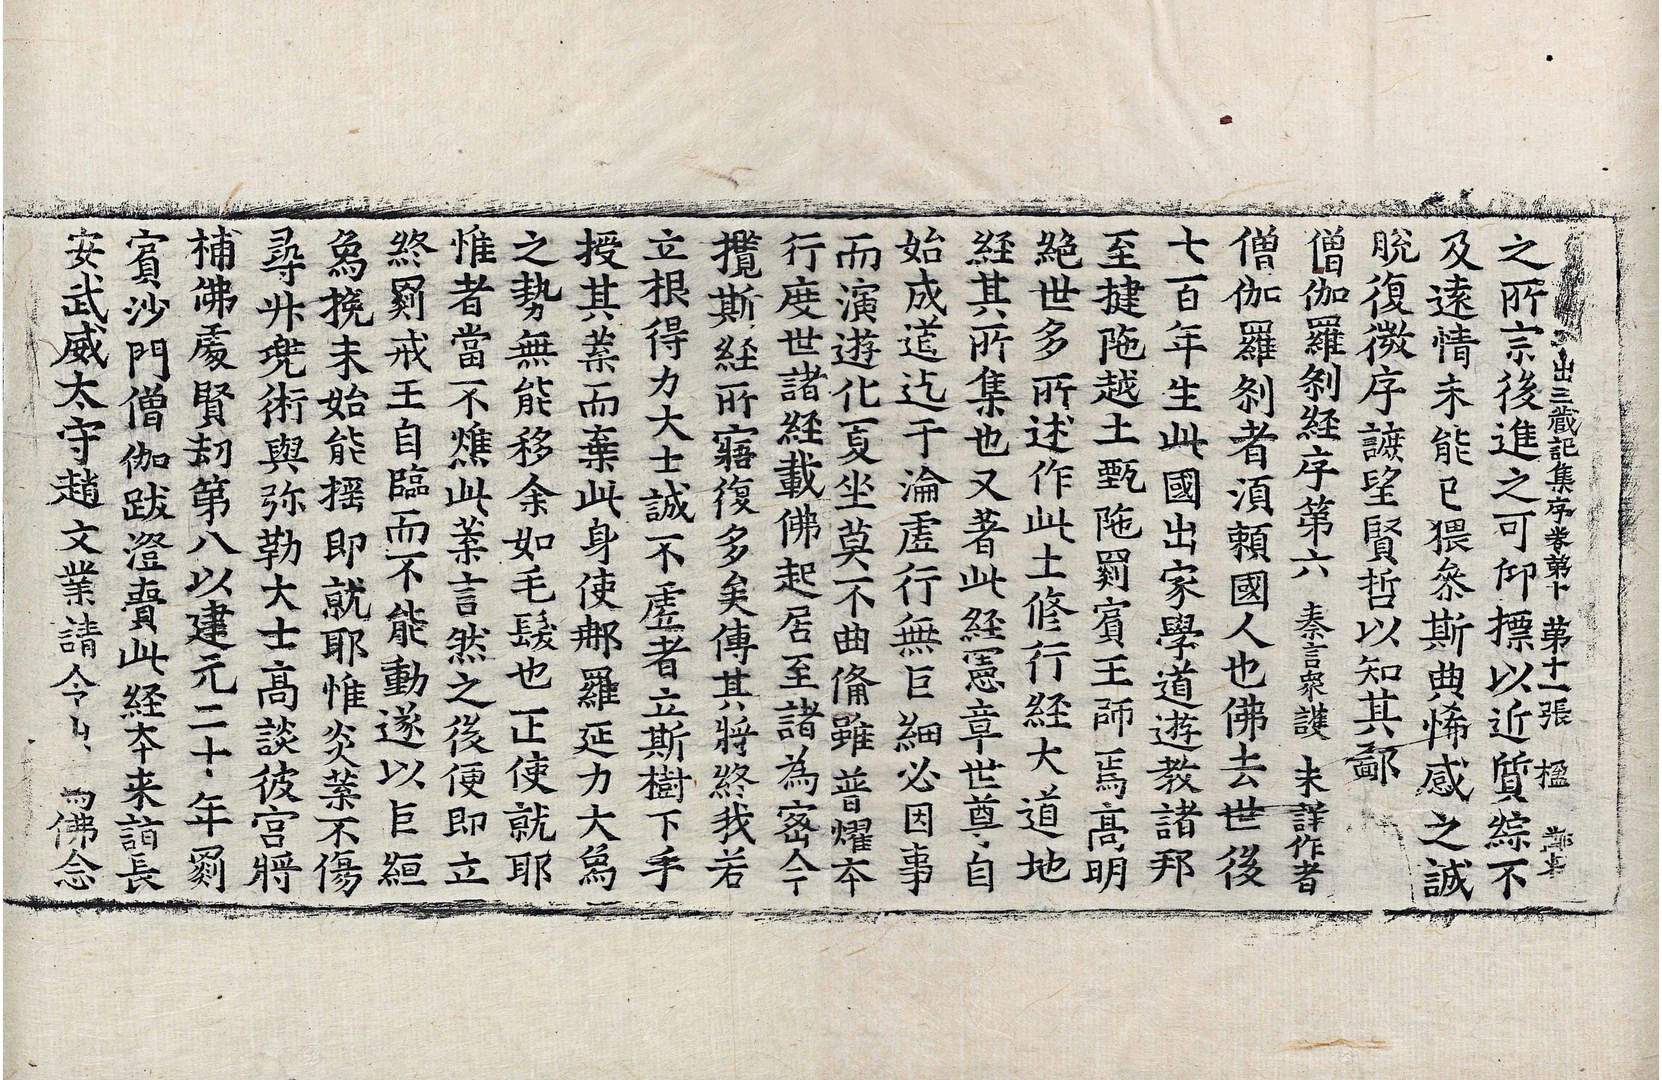 出三藏記集序卷第十 第十一張 楹
之所宗後進之可仰標以近質綜不
及遠情未能已猥叅斯典悕感之誠
脫復微序謶望賢哲以知其鄙
僧伽羅剎経序第六 秦言衆護 未詳作者
僧伽羅剎者湏賴國人也佛去世後
七百年生此國出家學道遊教諸邦
至揵陁越土甄陁罽賓王師焉髙明
絶世多所述作此土修行経大道地
経其所集也又著此経憲章世尊自
始成道迄于淪虛行無巨細必因事
而演遊化夏坐莫不曲俻雖普耀夲
行度世諸経載佛起居至諸為宻今
攬斯経所寤復多矣傳其將終我若
立根得力大士誠不虛者立斯樹下手
授其葉而棄此身使那羅延力大象
之勢無能移余如毛髮也正使就耶
惟者當不燋此葉言然之後便即立
終罽戒王自臨而不能動遂以巨絙
象挽未始能揺即就耶惟炎葉不傷
尋升兜術與弥勒大士髙談彼宮將
補佛處賢劫第八以建元二十年罽
賓沙門僧伽跋澄賷此経夲来詣長
安武威太守趙文業請令 佛念